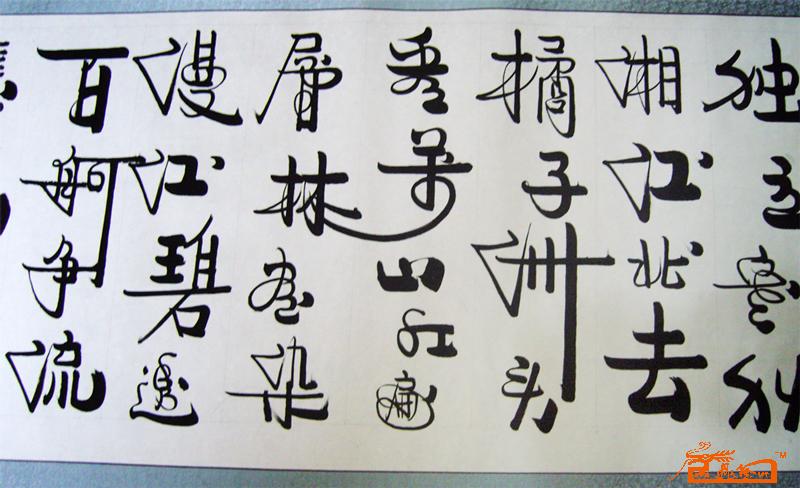 独立寒秋
湘江北去
橘子洲头
看萬山红遍
層林尽染
漫江碧透
百舸争流